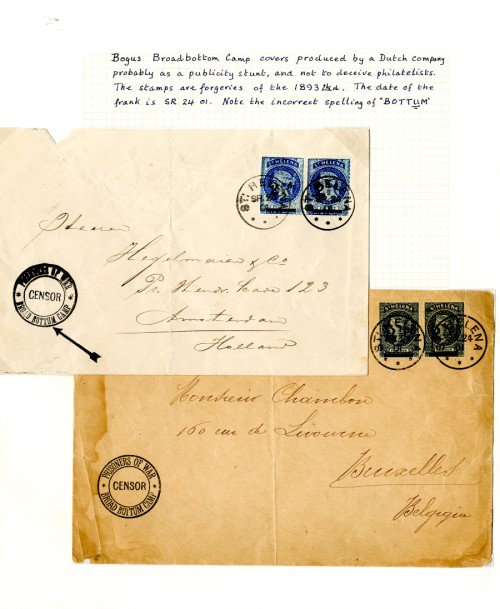 Bogus Broadbottom Camp covers produced by a Dutch company
probably as a publicity stunt, and not to deceive philatelists.
The stamps are forgeries of the 1893 2½d. The date of the
frank is SR 24 01. Note the incorrect spelling of "BOTTUM"
ST HELENA
ST HELENA
ST. HELENA
ST. HELENA
Amsterdam
Holland
PRISONERS OF WAR
CENSOR
BROAD BOTTUM CAMP
ST HELENA
ST HELENA
ST. HELENA
24
Monsieur Chambon
160 rue de Livourne
Bruxelles
Belgigia
PRISONERS OF WAR
CENSOR
BROAD BOTTUM CAMP